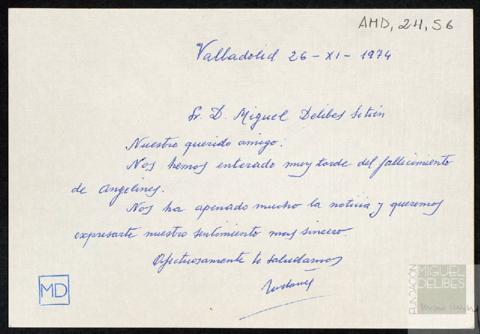 AMD, 24, 56
Valladolid 26-XI-1974
Sr. D. Miguel Delibes Setién
Nuestro querido amigo:
Nos hemos enterado muy tarde del fallecimiento
de Angelines.
Nos ha apenado mucho la noticia y queremos
expresarte nuestro sentimiento mas sincero
Afectuosamente te saludamos
MD
FUNDACIÓN
MIGUEL
DELIBES